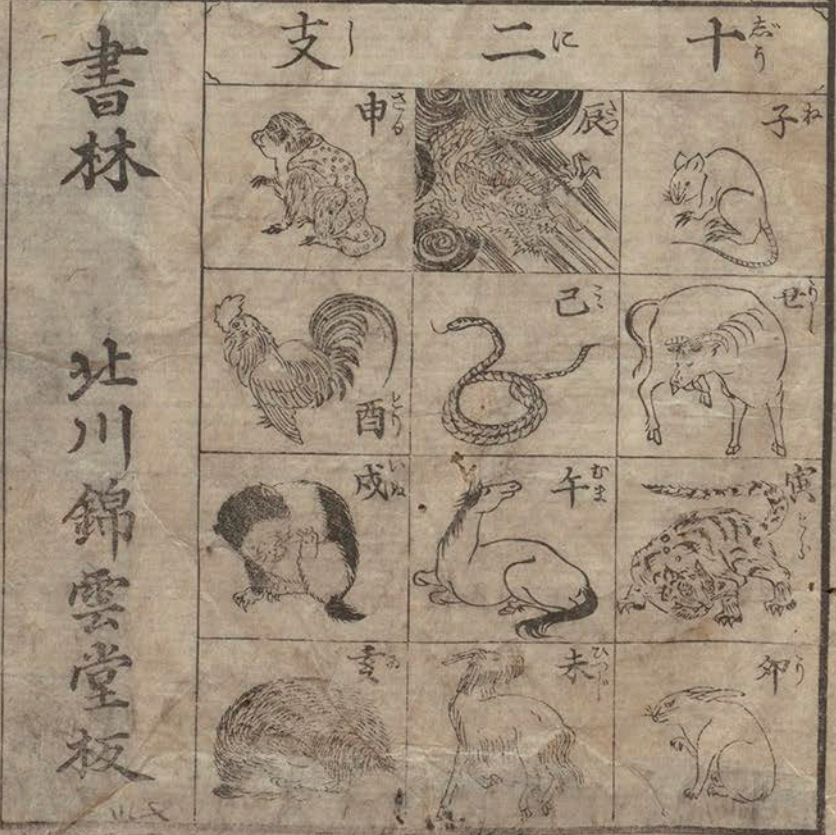 十二支
じうにし
子
ね
丑
うし
寅
とら
卯
う
辰
たつ
巳
み
午
むま
未
ひつじ
申
さる
酉
とり
戌
いぬ
亥
ゐ
書林 北川錦雲堂板